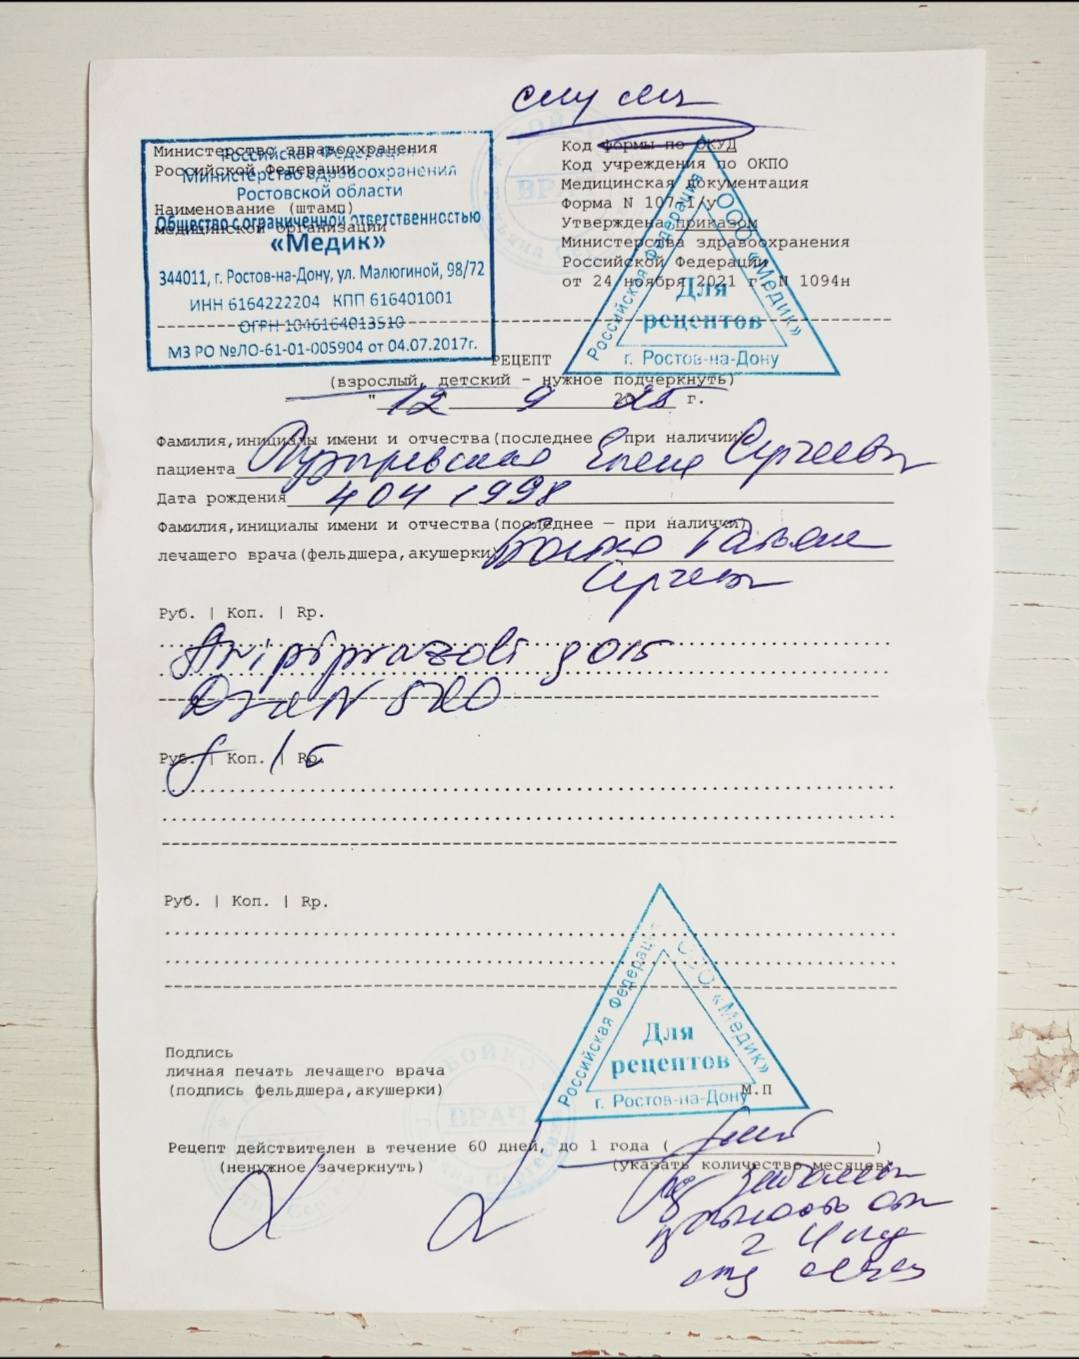 Министерство здравоохранения
Российской Федерации
Наименование (штамп)
медицинской организации
Российская Федерация
Министерство здравоохранения
Ростовской области
Общество с ограниченной ответственностью
«Медик»
344011, г. Ростов-на-Дону, ул. Малюгиной, 98/72
ИНН 6164222204 КПП 616401001
ОГРН 1046164013510
МЗ РО №ЛО-61-01-005904 от 04.07.2017г.
Код формы по ОКУД
Код учреждения по ОКПО
Медицинская документация
Форма N 107-1/у
Утверждена приказом
Министерства здравоохранения
Российской Федерации
от 24 ноября 2021 г. N 1094н
Российская Федерация
ООО «Медик»
Для
рецептов
г. Ростов-на-Дону
РЕЦЕПТ
(взрослый, детский - нужное подчеркнуть)
" 12 9 2025 г.
Фамилия,инициалы имени и отчества(последнее - при наличии)
пациента Елена Сергеевн
Дата рождения 4 04 1998
Фамилия,инициалы имени и отчества(последнее — при наличии)
лечащего врача(фельдшера,акушерки) Бойко Татьяна
Сергеевн
Руб. | Коп. | Rp.
Aripiprazoli 0,015
Руб. | Коп. | Rp.
Руб. | Коп. | Rp.
Российская Федерация
ООО «Медик»
Для
рецептов
г. Ростов-на-Дону
Подпись
личная печать лечащего врача
(подпись фельдшера,акушерки)
М.П
БОЙКО
ВРАЧ
Рецепт действителен в течение 60 дней, до 1 года ( )
(ненужное зачеркнуть)
(указать количество месяцев)